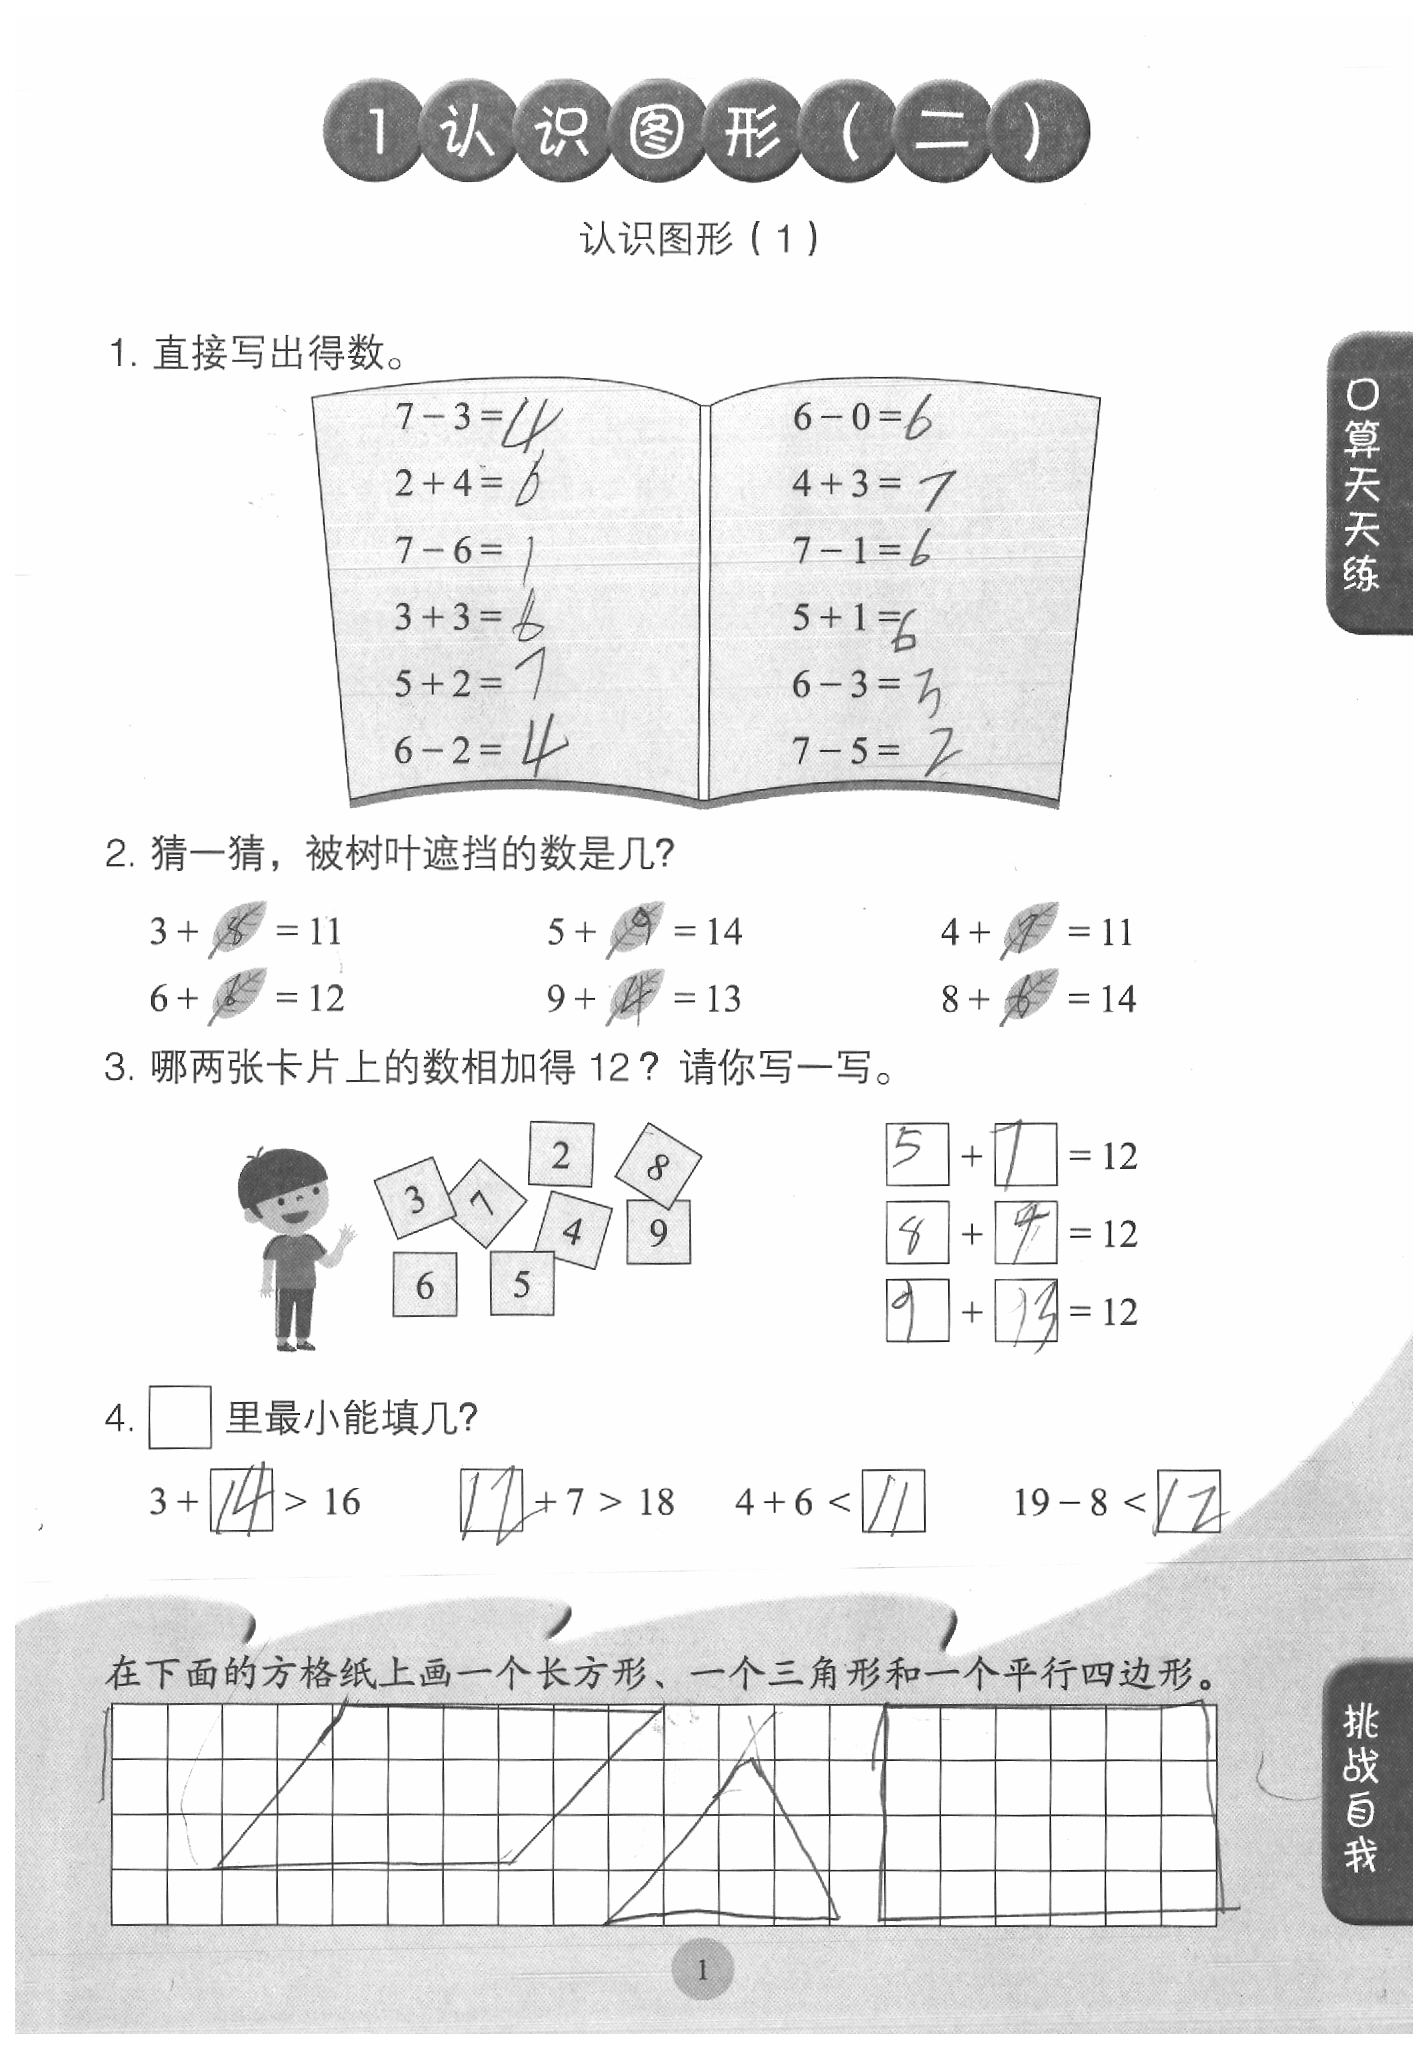 1认识图形（二）
认识图形（1）
1. 直接写出得数。
7－3＝4 6－0＝6
2＋4＝6 4＋3＝7
7－6＝1 7－1＝6
3＋3＝6 5＋1＝6
5＋2＝7 6－3＝3
6－2＝4 7－5＝2
口算天天练
2. 猜一猜，被树叶遮挡的数是几？
3＋8＝11 5＋9＝14 4＋7＝11
6＋6＝12 9＋4＝13 8＋6＝14
3. 哪两张卡片上的数相加得 12？请你写一写。
2 8
3 7 4 9
6 5
5＋7＝12
8＋4＝12
9＋3＝12
4. □里最小能填几？
3＋14＞16 12＋7＞18 4＋6＜11 19－8＜12
在下面的方格纸上画一个长方形、一个三角形和一个平行四边形。
挑战自我
1